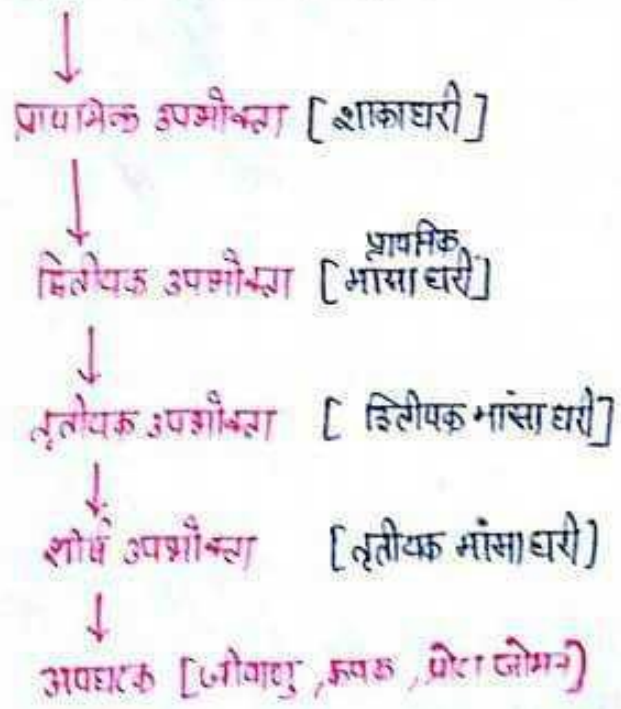 ↓
प्राथमिक उपभोक्ता [शाकाहारी]
↓
प्राथमिक
द्वितीयक उपभोक्ता [मांसाहारी]
↓
तृतीयक उपभोक्ता [द्वितीयक मांसाहारी]
↓
शीर्ष उपभोक्ता [तृतीयक मांसाहारी]
↓
अपघटक [जीवाणु, कवक, प्रोटोजोअन]